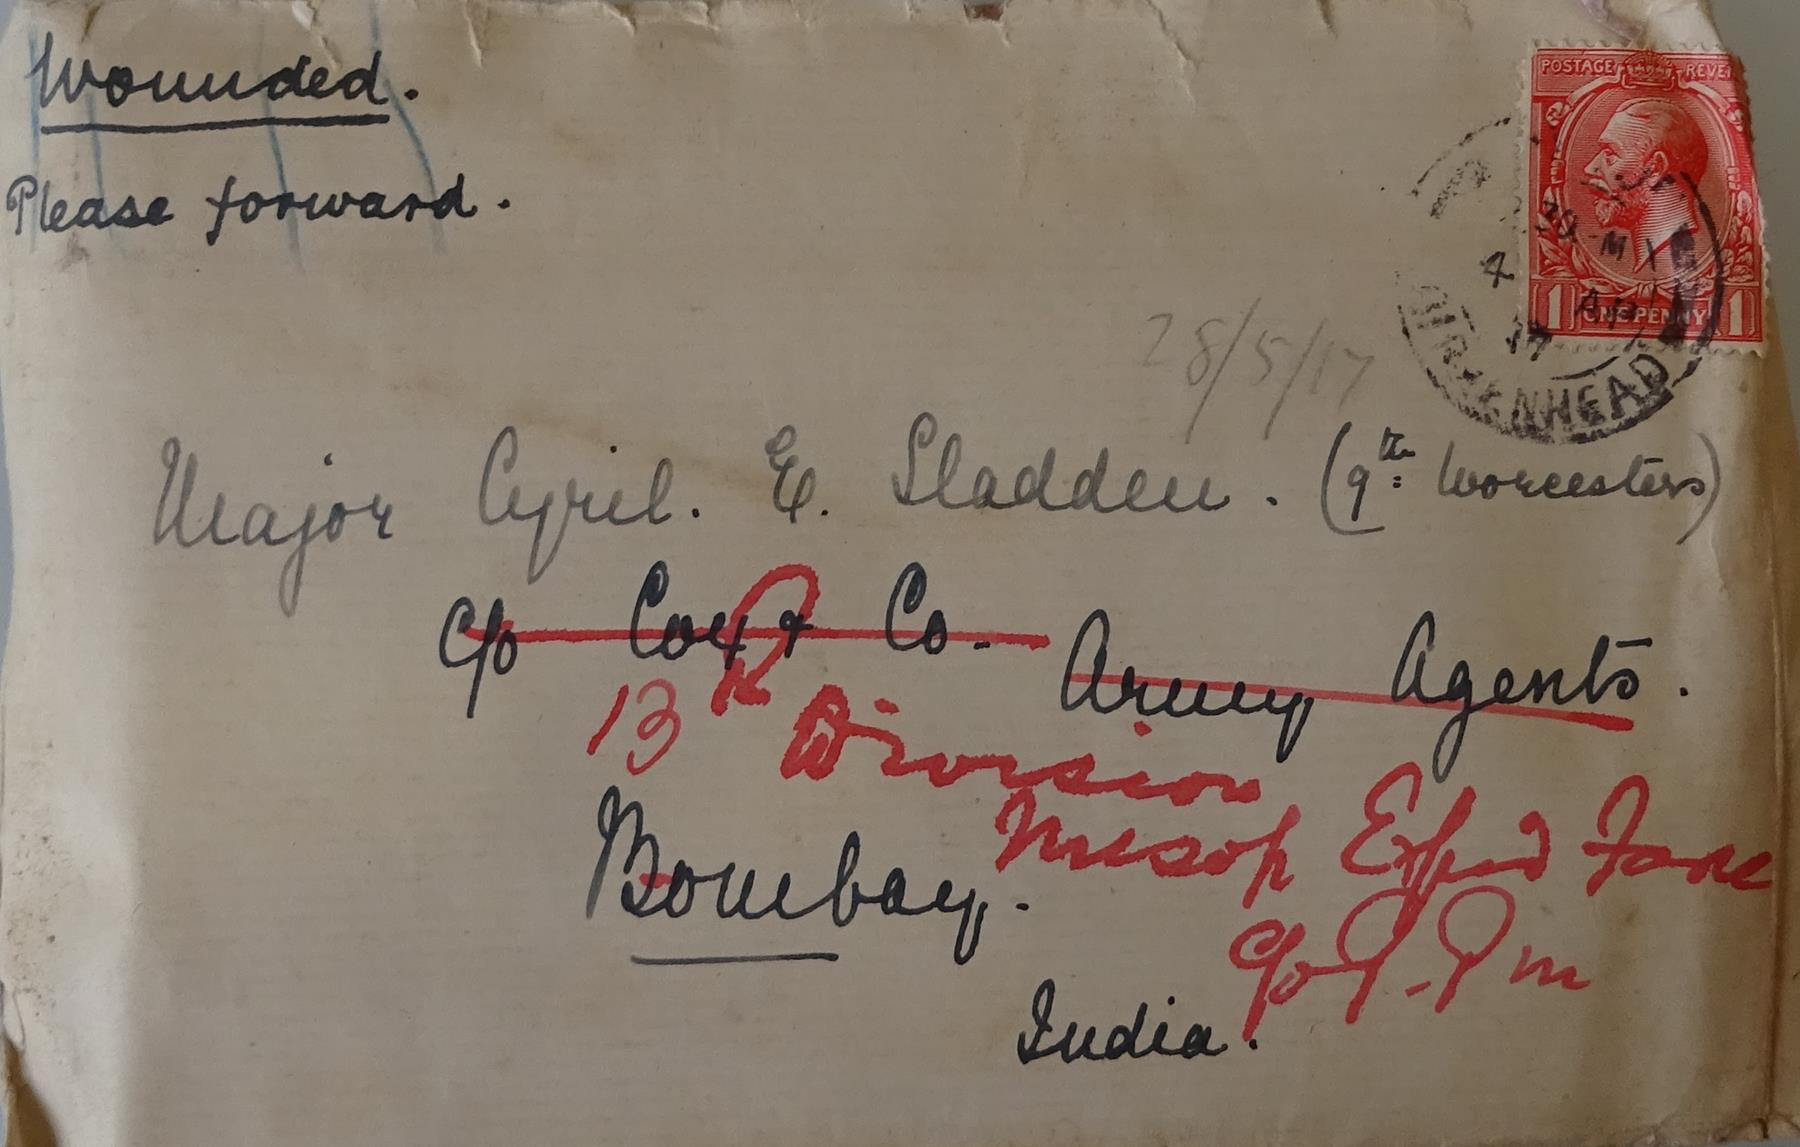 Wounded.
Please forward.
POSTAGE REVE
1 ONE PENNY 1
30 M
4 AP
17
BIRKENHEAD
28/5/17
Major Cyril. E. Sladden. (9th: Worcesters)
C/o Cox & Co. Army Agents.
13 Division
Mesop Expd Force
Bombay.
C/o P.M
India.